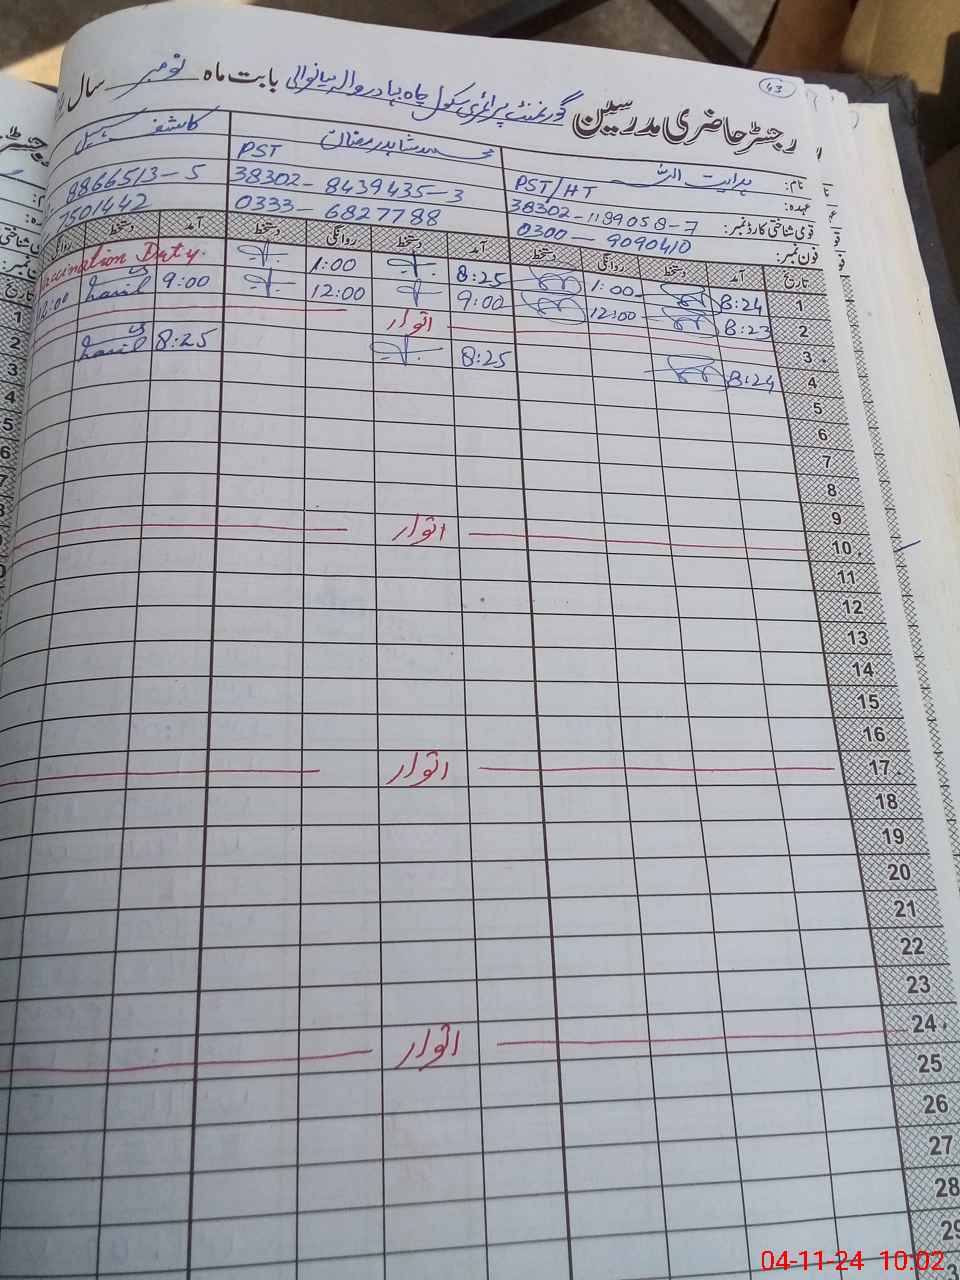 43
رجسٹر حاضری مدرسین گورنمنٹ پرائمری سکول چاہ بہادر والہ میانوالی بابت ماہ نومبر سال
نام: ہدایت اللہ محمد شاہد رمضان کاشف
عہدہ: PST/HT PST
قومی شناختی کارڈ نمبر: 38302-1189058-7 38302-8439435-3 8866513-5
فون نمبر: 0300-9090410 0333-6827788 7501442
تاریخ آمد دستخط روانگی دستخط آمد دستخط روانگی دستخط آمد دستخط روانگی
1 8:24 1:00 8:25 1:00 Vaccination Duty.
2 8:23 12:00 9:00 12:00 9:00 12:00
3 اتوار
4 8:24 8:25 8:25
5
6
7
8
9
10 اتوار
11
12
13
14
15
16
17 اتوار
18
19
20
21
22
23
24 اتوار
25
26
27
28
29
04-11-24 10:02